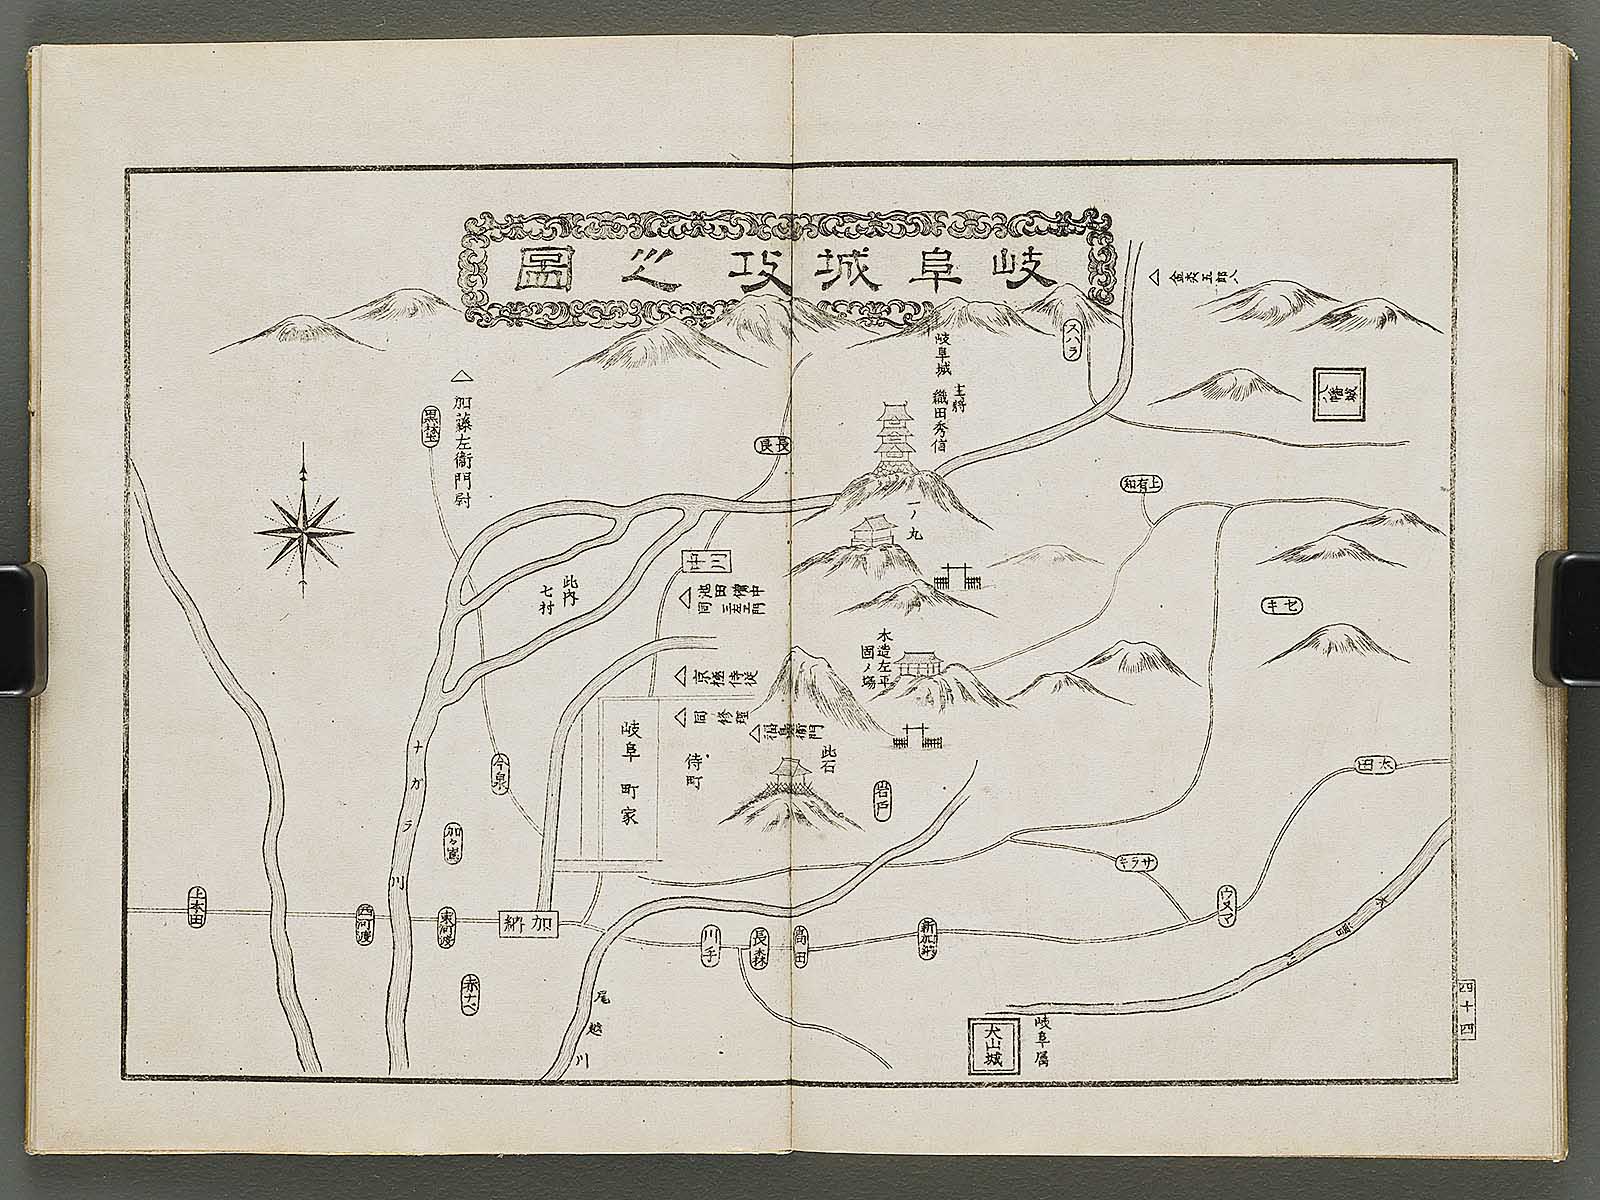 岐阜城攻之圖
金森五郎八
八幡城
スハラ
岐阜城
主將
織田秀信
加藤左衛門尉
黒埜
長良
上有知
一ノ丸
中川
此内
七村
池田備中
同三左エ門
セキ
木造左平
固ノ場
京極侍従
同修理
福島衛門
岐阜町家
侍町
此石
岩戸
今泉
太田
ナガラ川
加々嶌
サラキ
上本田
西河渡
東河渡
加納
川手
長森
高田
新加納
ウヌマ
木曽川
赤ナベ
尾越川
犬山城
岐阜属
四十四